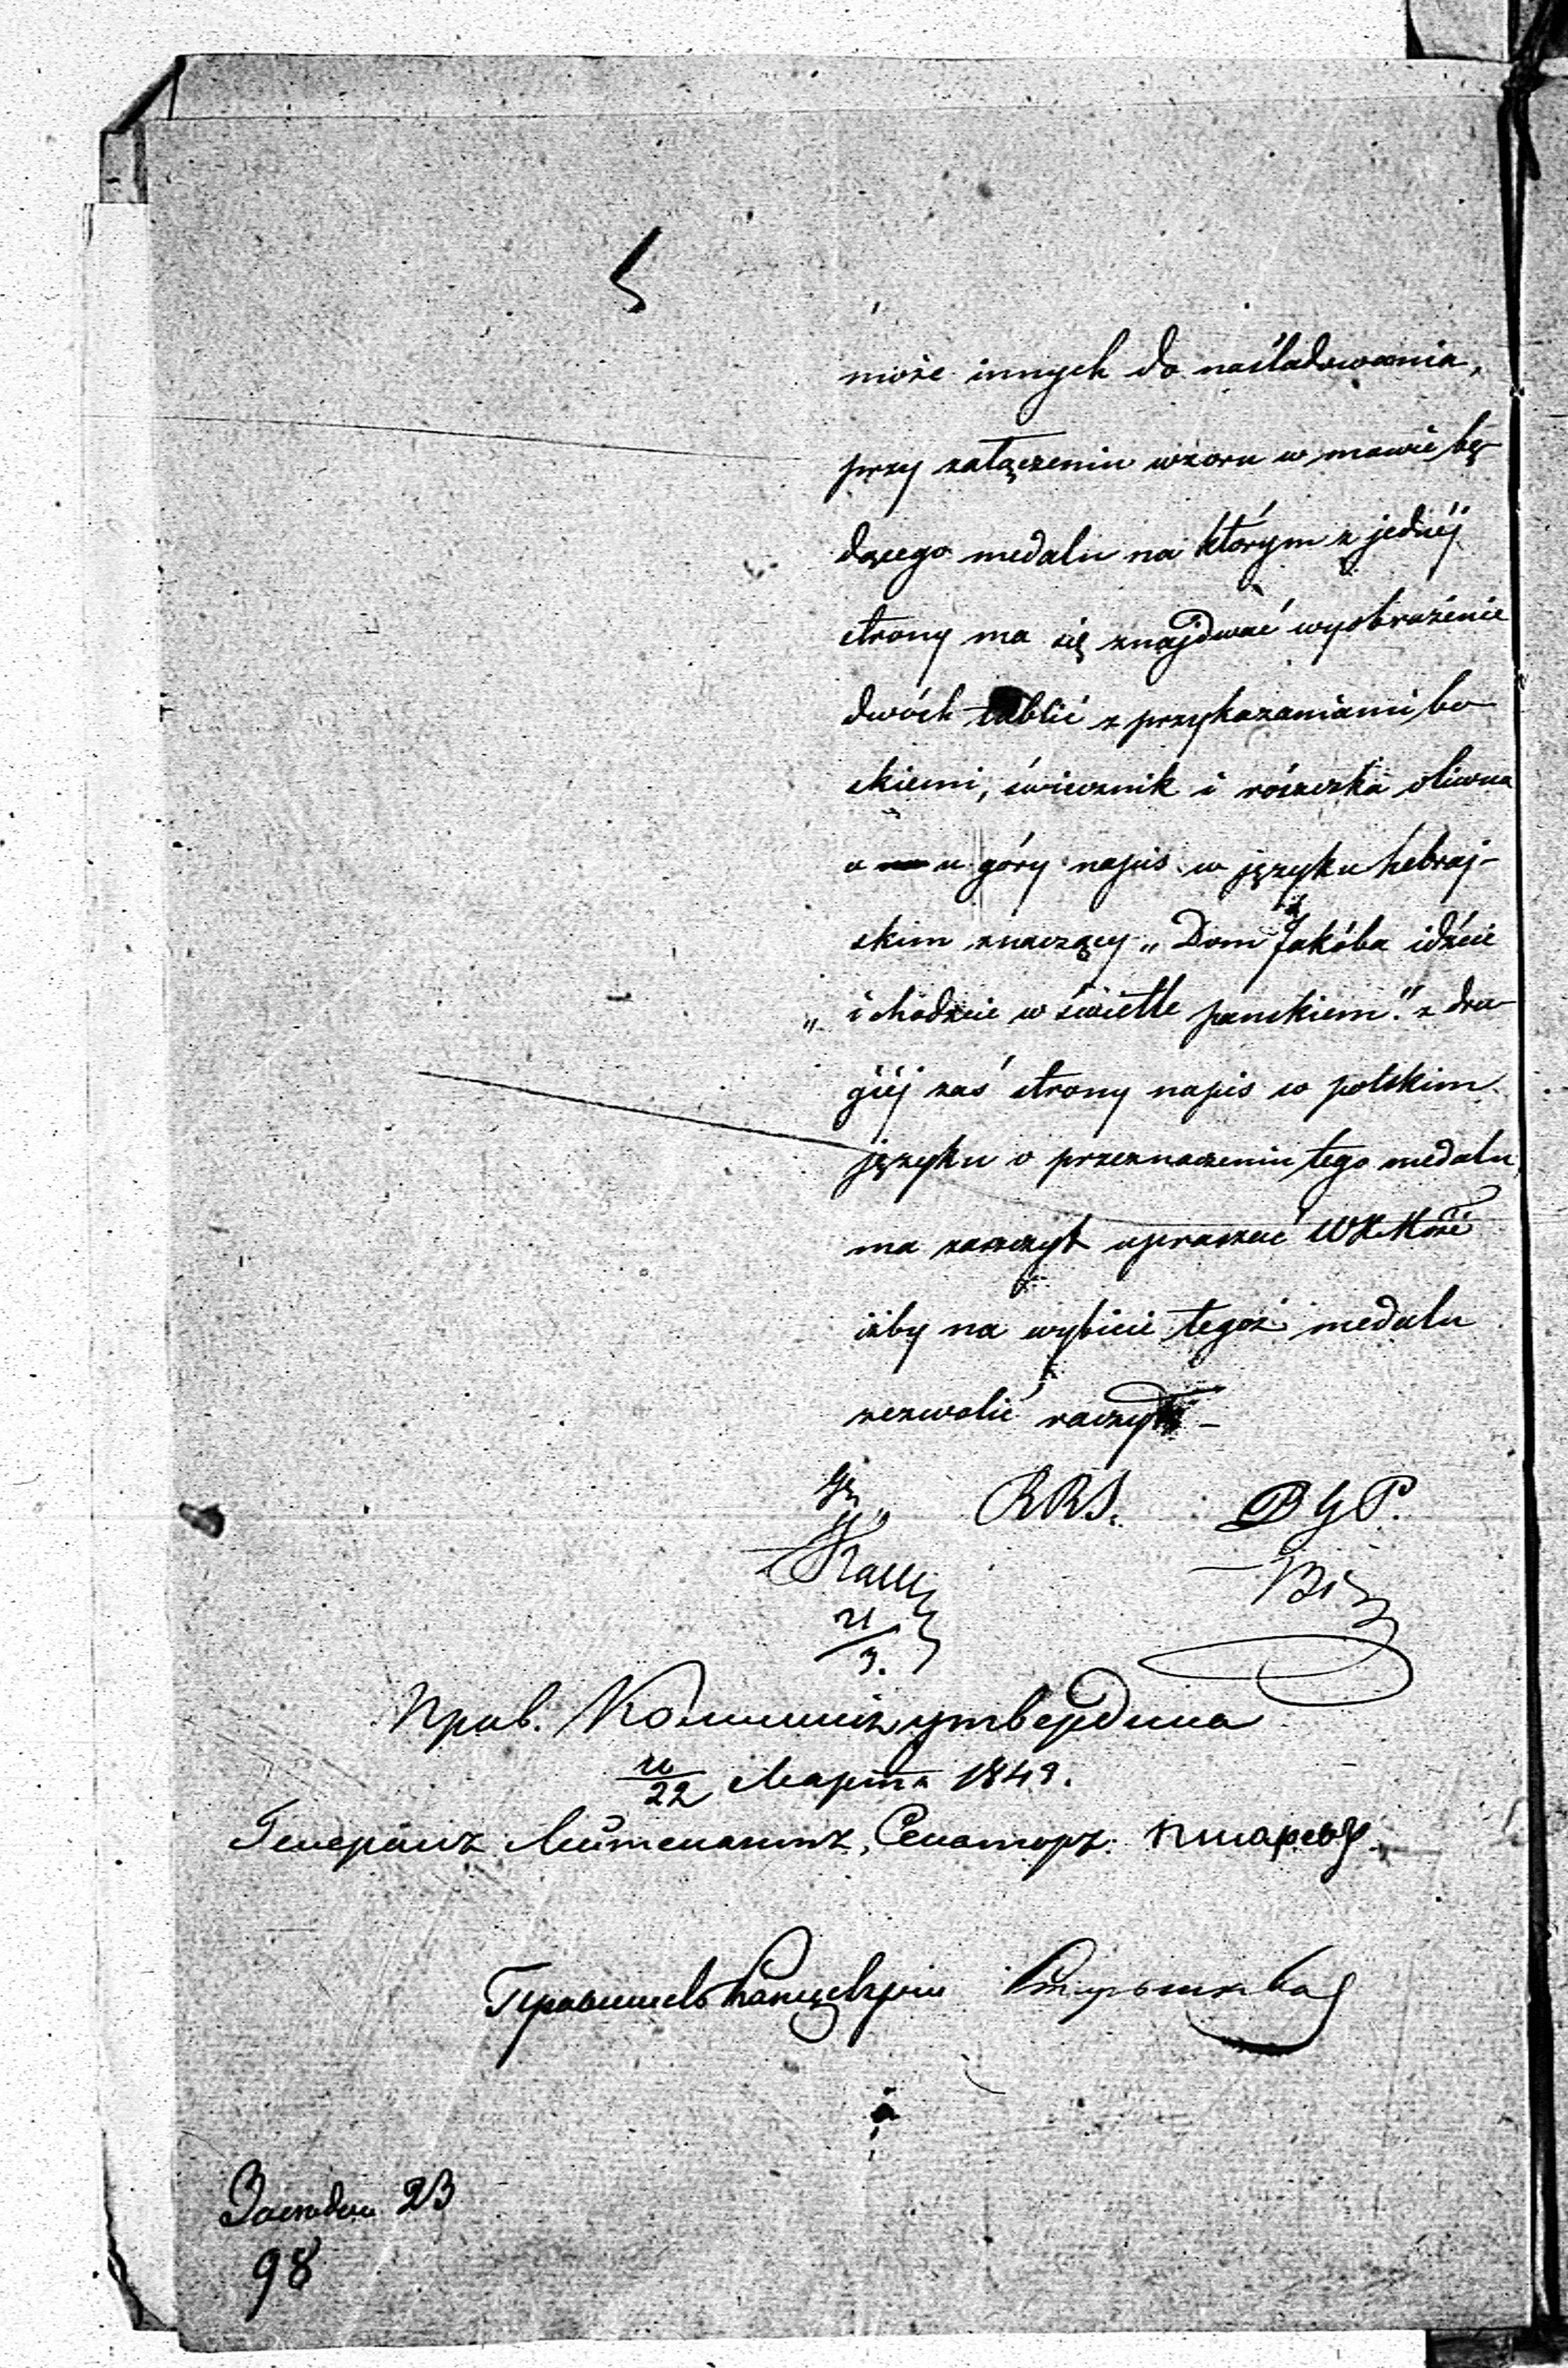 może innych do naśladowania,
przy załączeniu wzoru w mowie bę-
dącego medalu na którym z jednéj
strony ma się znajdować wyobrażenie
dwóch tablic z przykazaniami bo-
skiemi, świecznik i rószczka oliwna
a u góry napis w języku hebraj-
skim znaczący „Dom Jakóba idźcie
„ i chodźcie w świetle panskiem." z dru-
giéj zaś strony napis w polskim
języku o przeznaczeniu tego medalu,
ma zaszczyt upraszać WXMość
iżby na wybicie tegoż medalu
zezwolić raczył –
RRS. DGP.
3.
Прав. Коммисія утвердила
22 Марта 1849.
Генералъ Лейтенантъ, Сенаторъ: Писаревъ.
Правитель Канцеляріи
23
98